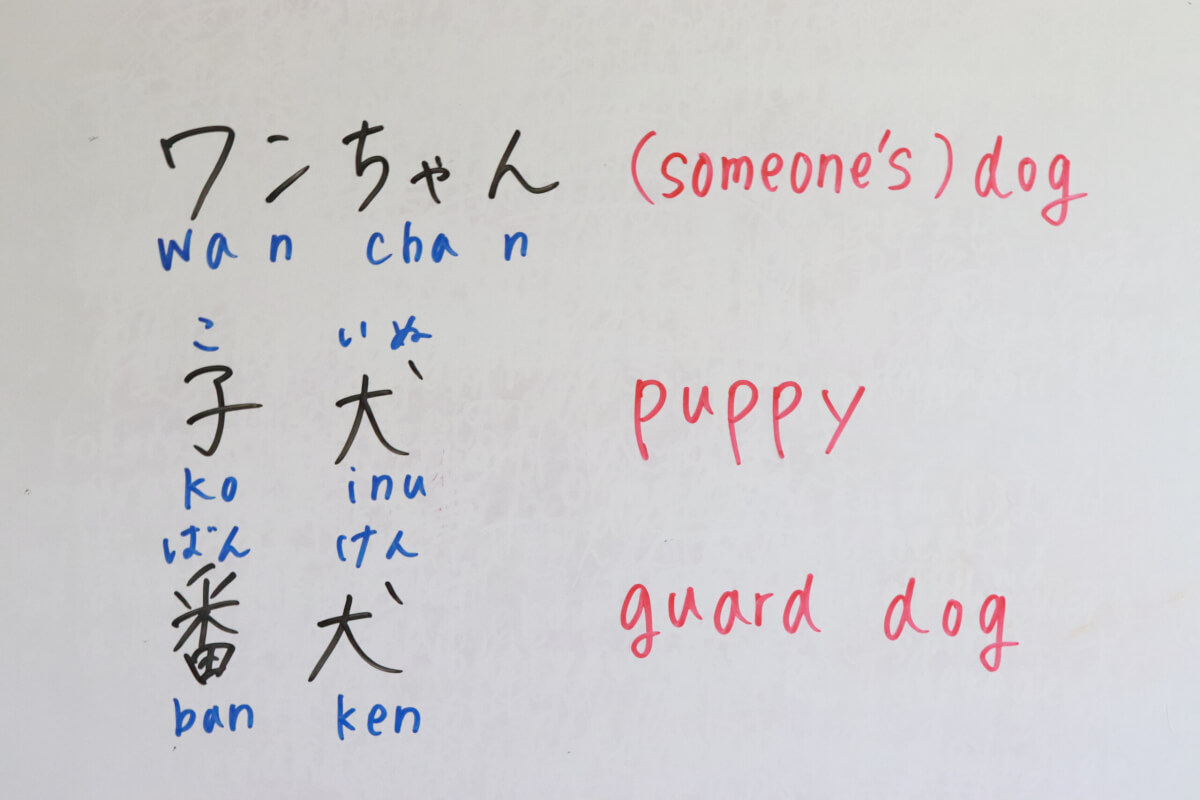 ワンちゃん (someone's) dog
wa n cha n
こ いぬ
子犬 puppy
ko inu
ばん けん
番犬 guard dog
ban ken